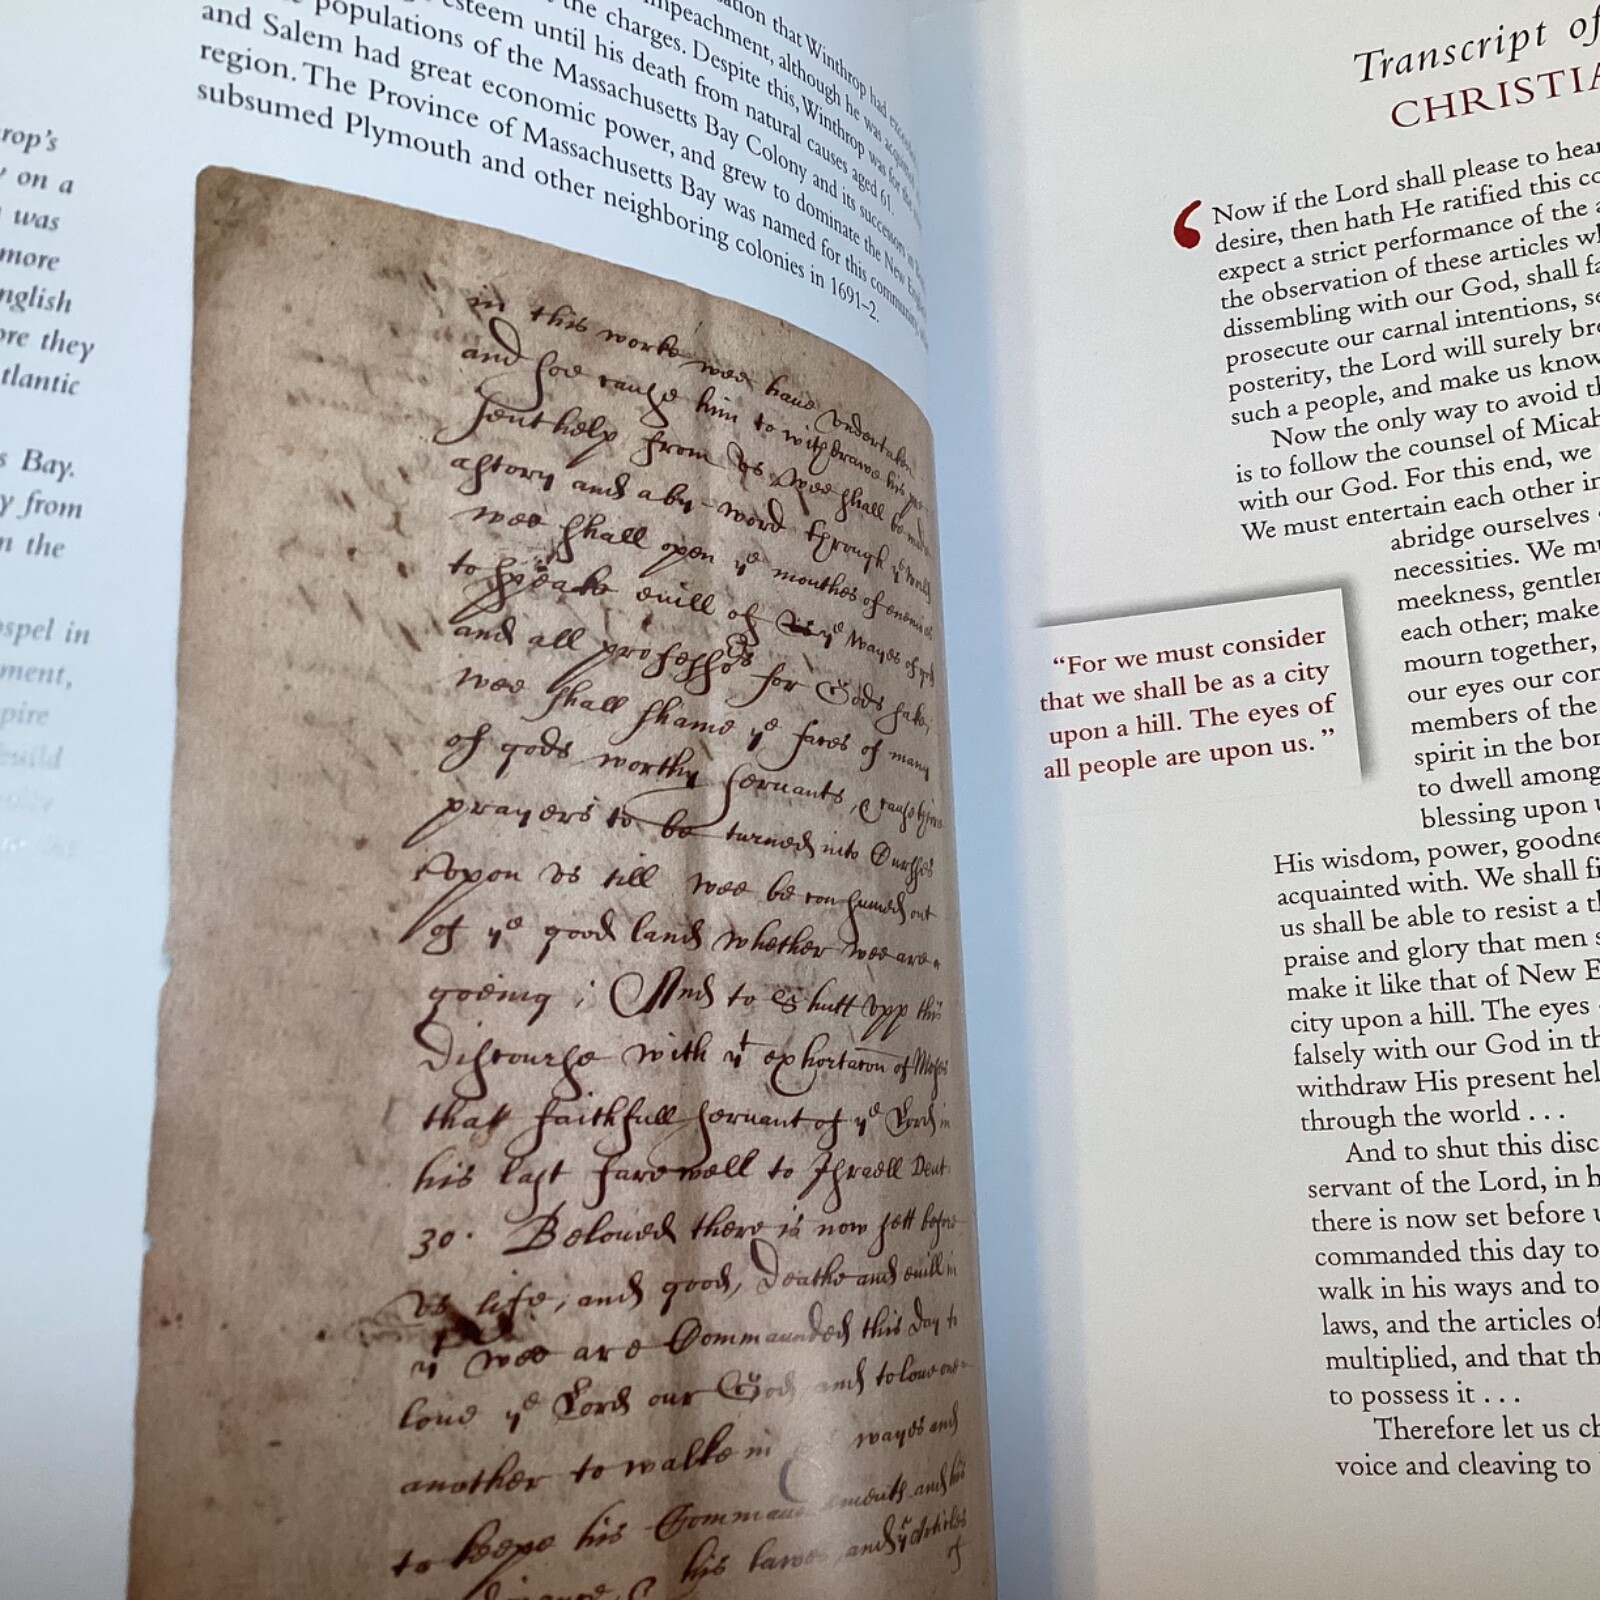 rop's
on a
was
more
nglish
ore they
tlantic
s Bay.
y from
n the
ospel in
ment,
pire
sation that Winthrop had
impeachment, although he was
the charges. Despite this, Winthrop was
esteem until his death from natural causes aged 61.
populations of the Massachusetts Bay Colony and its successors in
and Salem had great economic power, and grew to dominate the New
region. The Province of Massachusetts Bay was named for this community,
subsumed Plymouth and other neighboring colonies in 1691–2.
in this worke wee haue vndertaken
and soe cause him to withdrawe his
sent help from vs wee shall be made
a story and a by-word through ye world
wee shall open ye mouthes of enemies
to speake euill of ye wayes of god
and all professors for Gods sake,
wee shall shame ye faces of many
of gods worthy servants, & cause
prayers to be turned into Cursses
vpon vs till wee be consumed out
of ye good land whether wee are
goeing ; And to shutt vpp this
Discourse with yt exhortation of Moses
that faithfull servant of ye Lord in
his last farewell to Israell Deut.
30. Beloued there is now sett before
vs life, and good, Deathe and euill in
yt wee are Commaunded this day to
loue ye Lord our God, and to loue one
another to walke in wayes and
to keepe his and his
his lawes, and ye Articles
of
Transcript of
CHRISTIA
‘ Now if the Lord shall please to hear
desire, then hath He ratified this co
expect a strict performance of the a
the observation of these articles wh
dissembling with our God, shall fa
prosecute our carnal intentions, se
posterity, the Lord will surely bre
such a people, and make us know
Now the only way to avoid th
is to follow the counsel of Micah
with our God. For this end, we
We must entertain each other in
abridge ourselves
necessities. We mu
meekness, gentlen
each other; make
mourn together,
our eyes our com
members of the
spirit in the bon
to dwell among
blessing upon u
“For we must consider
that we shall be as a city
upon a hill. The eyes of
all people are upon us. ”
His wisdom, power, goodne
acquainted with. We shall fi
us shall be able to resist a th
praise and glory that men s
make it like that of New E
city upon a hill. The eyes
falsely with our God in th
withdraw His present hel
through the world . . .
And to shut this disc
servant of the Lord, in h
there is now set before u
commanded this day to
walk in his ways and to
laws, and the articles of
multiplied, and that th
to possess it . . .
Therefore let us ch
voice and cleaving to